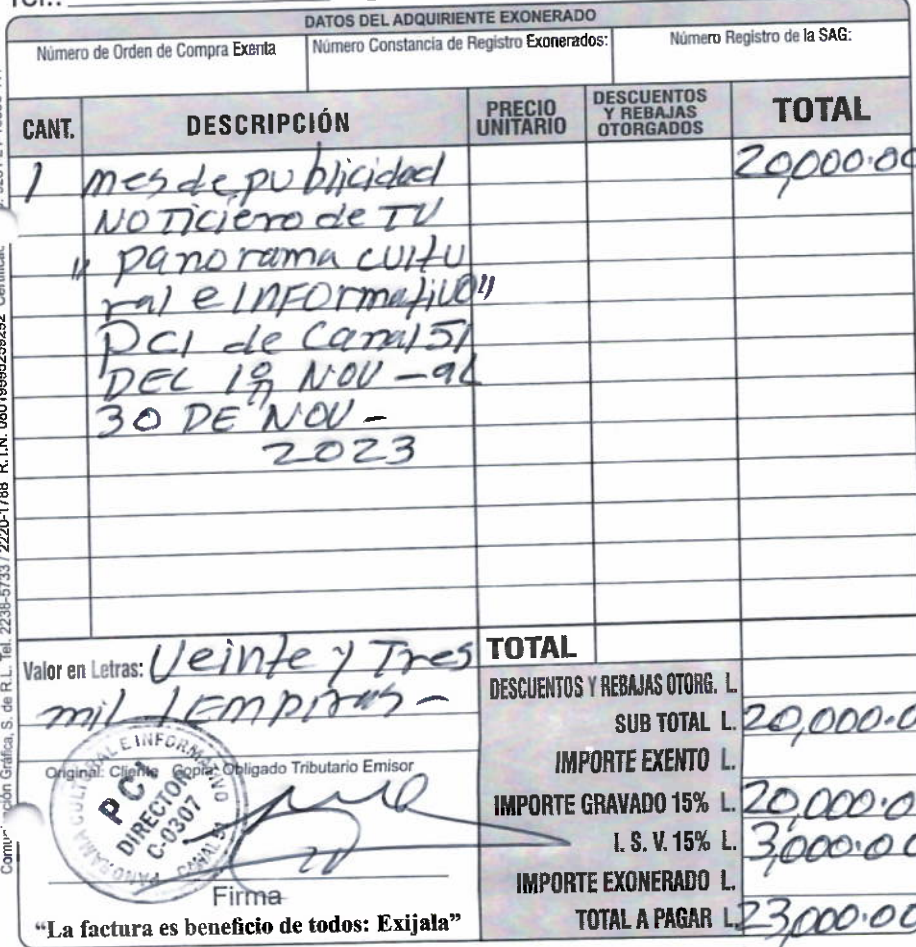 Tel.:
DATOS DEL ADQUIRIENTE EXONERADO
Número de Orden de Compra Exenta Número Constancia de Registro Exonerados: Número Registro de la SAG:
CANT. DESCRIPCIÓN PRECIO UNITARIO DESCUENTOS Y REBAJAS OTORGADOS TOTAL
1 mes de publicidad 20,000.00
NOTICIERO de TV
" panorama cultu
ral e INFORmativo"
PCI de Canal 51
DEL 1º NOV - al
30 DE NOV -
2023
Valor en Letras: Veinte y Tres
mil LEMPIRAS -
Original: Cliente Copia: Obligado Tributario Emisor
PANORAMA CULTURAL E INFORMATIVO
PCI
DIRECTOR
C-0307
Firma
"La factura es beneficio de todos: Exijala"
TOTAL
DESCUENTOS Y REBAJAS OTORG. L.
SUB TOTAL L. 20,000.0
IMPORTE EXENTO L.
IMPORTE GRAVADO 15% L. 20,000.0
I. S. V. 15% L. 3,000.00
IMPORTE EXONERADO L.
TOTAL A PAGAR L. 23,000.00
Gráfica, S. de R.L. Tel. 2238-5733 / 2220-1788 R.T.N.